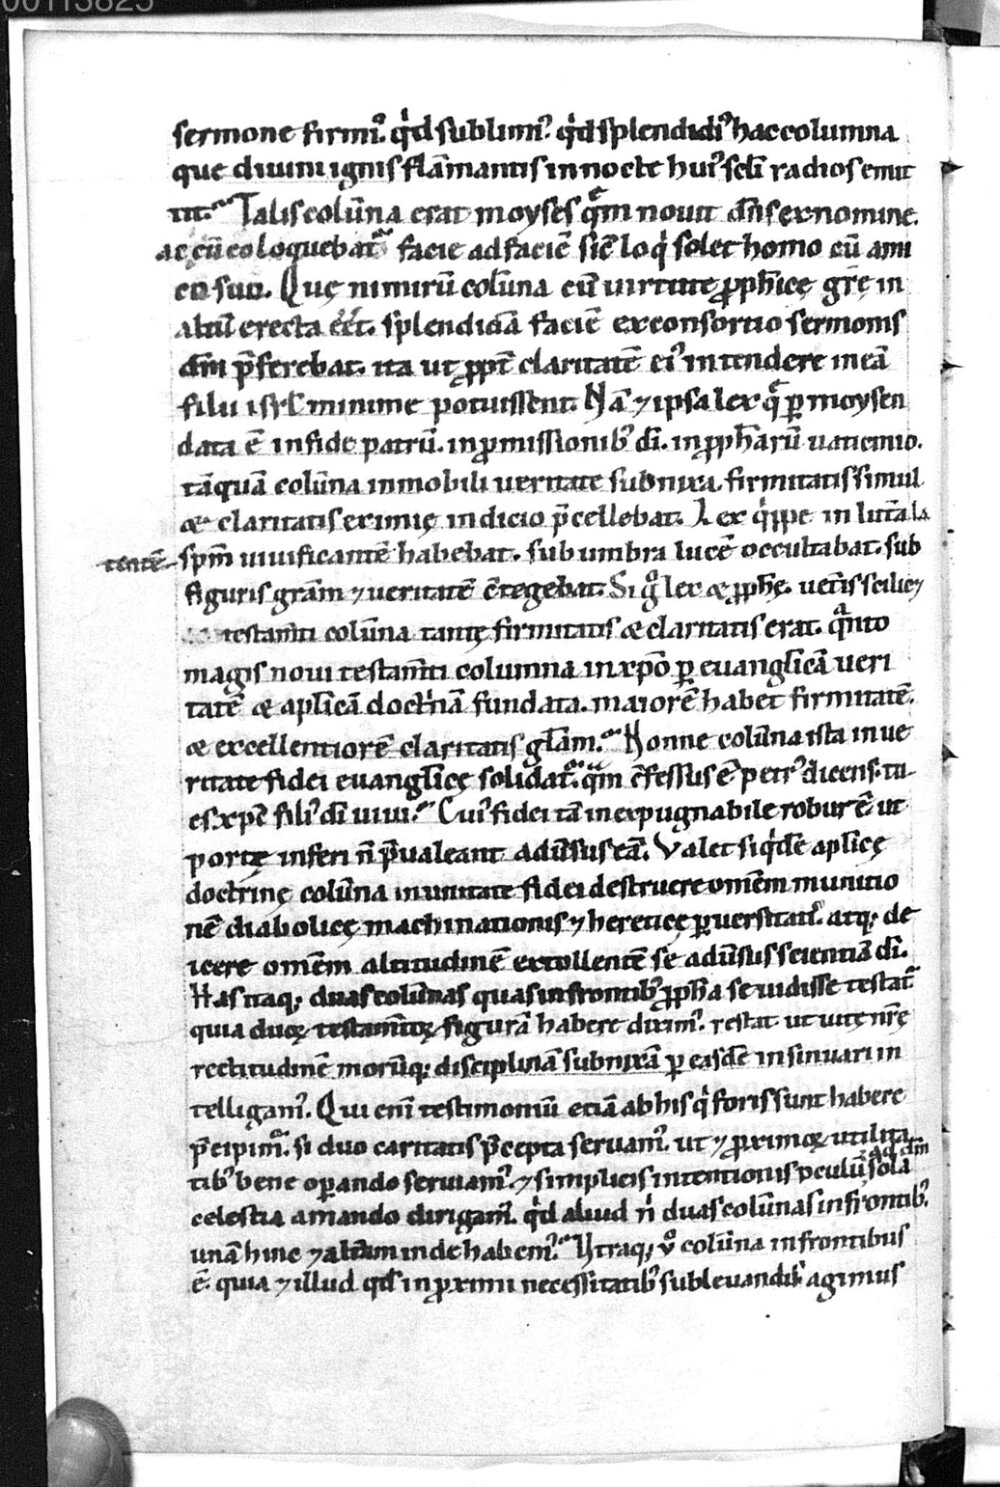 00113825
sermone firmi᾽ qͥd sublimi᾽ qͥd splendidi᾽ hac columna
que diuini ignis flāmantis in nocte hui᾽ sc̄li radios emit
tit. Talis colūna erat moyses quē nouit dn̄s ex nomine.
ac cū eo loquebat᾽ facie ad faciē sic̄ loqͥ solet homo cū ami
co suo. Quę nimirū colūna cū uirtute ꝓph̄icę gr̄ę in
altū erecta eēt. splendidā faciē ex consortio sermonis
dn̄i p̄ferebat. ita ut ꝓpt̄ claritatē ei᾽ intendere in eā
filii isr̄l minime potuissent. Nā ⁊ ipsa lex quę ꝑ moysen
data ē in fide patrū. in ꝓmissionib᾽ dī. in ꝓph̄arū uaticinio.
tāquā colūna inmobili ueritate subnixa. firmitatis simul
& claritatis eximię indicio p̄cellebat. Lex qͥppe in litt̄a la
tentē sp̄m uiuificantē habebat. sub umbra lucē occultabat. sub
figuris gr̄am ⁊ ueritatē c̄tegebat. Si gͦ lex & ꝓph̄ę. ueīs scilicꝫ
testam̄ti colūna tantę firmitatis & claritatis erat. qͣnto
magis noui testam̄ti columna in xp̄o ꝑ euangl̄icā ueri
tatē & apl̄icā doctͥnā fundata. maiorē habet firmitatē.
& excellentiorē claritatis gl̄am. Nonne colūna ista in ue
ritate fidei euangl̄icę solidat᾽. quā c̄fessus ē petr᾽ dicens. tu
es xp̄c fili᾽ dī uiui. Cui᾽ fidei tā inexpugnabile robur ē ut
portę inferi n̄ p̄ualeant adūsus eā. Valet siqͥdē apl̄icę
doctrinę colūna in unitate fidei destruere om̄em munitio
nē diabolicę machinationis ⁊ hereticę ꝑuersitati᾽. atq; de
icere om̄em altitudinē extollentē se adūsus scientiā dī.
Has itaq; duas colūnas quas in frontib᾽ ꝓph̄a se uidisse testat᾽
quia duoꝝ testam̄toꝝ figurā habere dixim᾽. restat ut uitę nr̄ę
rectitudinē morūq; disciplinā subnixā ꝑ easdē insinuari in
telligam᾽. Qui enī testimoniū etiā ab his qͥ foris sunt habere
p̄cipim᾽. si duo caritatis p̄cepta seruam᾽. ut ⁊ ꝓximoꝝ utilita
tib᾽ bene oꝑando seruiam᾽. ⁊ simplicis intentionis oculū ad dn̄m sola
celestia amando dirigam᾽. qͥd aliud nͥ duas colūnas in frontib᾽.
unā hinc ⁊ alterā inde habem᾽. Vtraq; uͦ colūna in frontibus
ē. quia ⁊ illud qd̄ in ꝓximi necessitatib᾽ subleuandis agimus